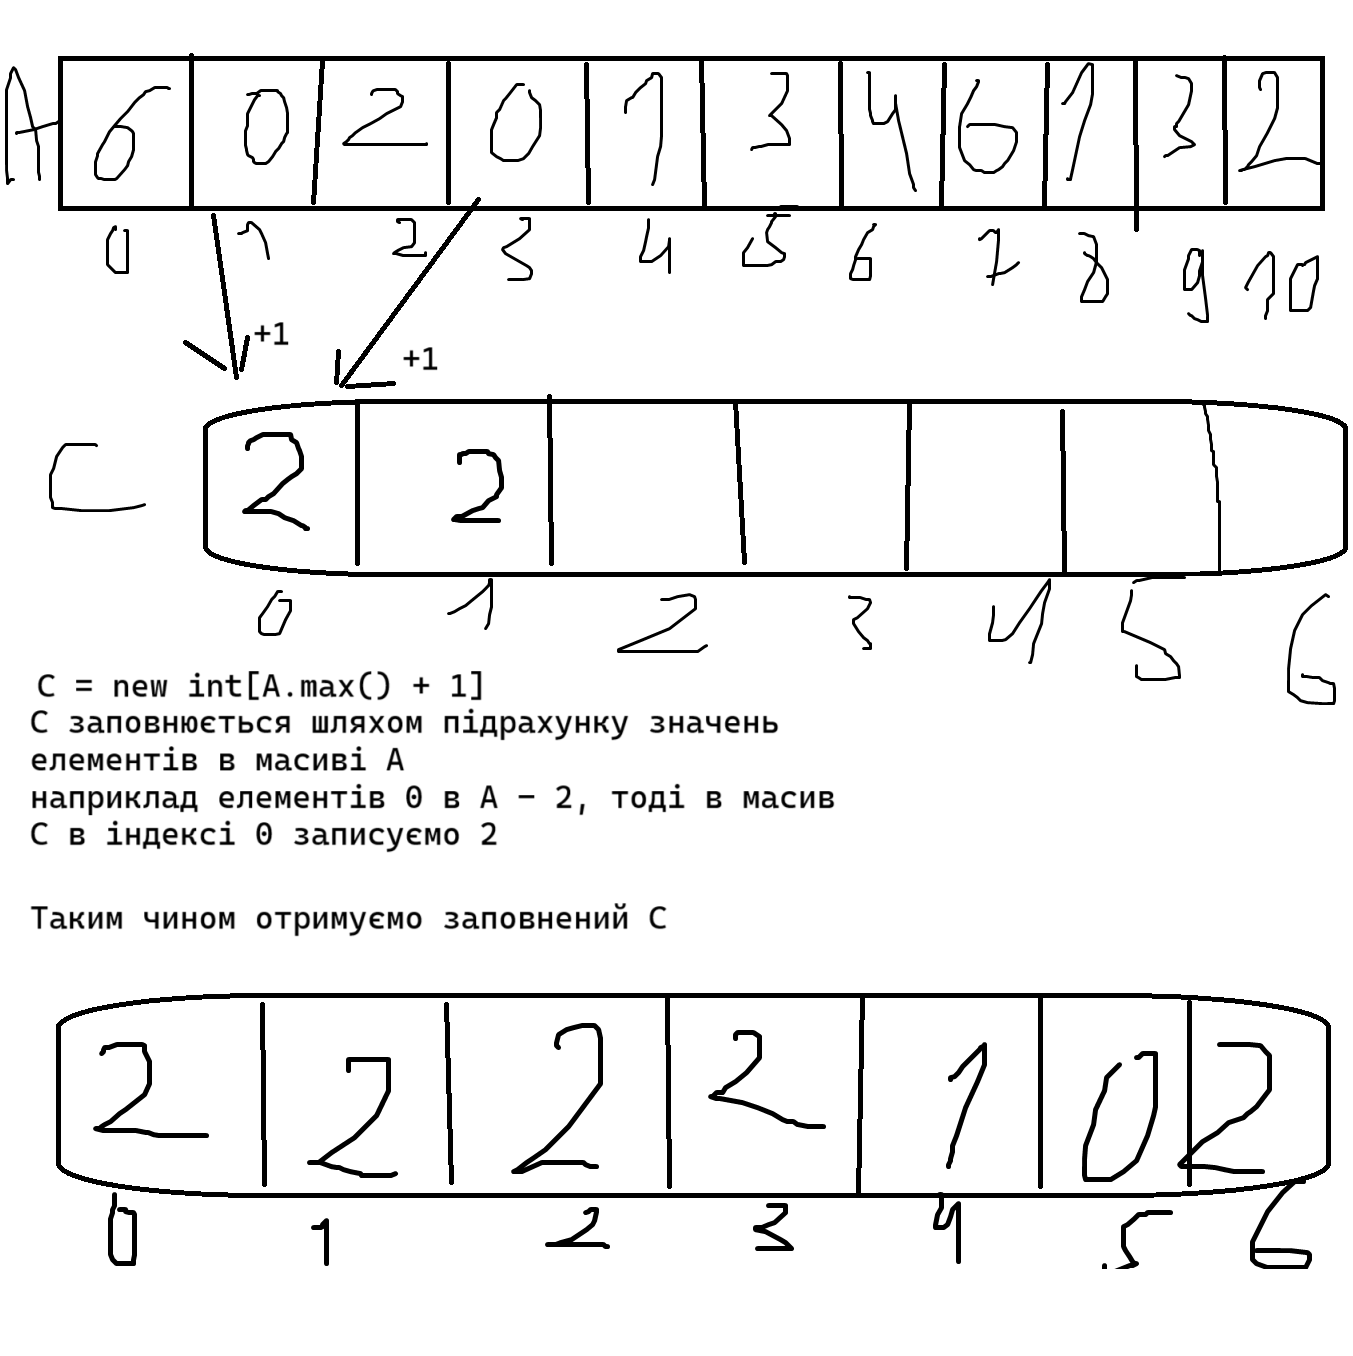 A 6 0 2 0 1 3 4 6 1 3 2
0 1 2 3 4 5 6 7 8 9 10
+1
+1
C 2 2
0 1 2 3 4 5 6
C = new int[A.max() + 1]
С заповнюється шляхом підрахунку значень
елементів в масиві А
наприклад елементів 0 в А - 2, тоді в масив
С в індексі 0 записуємо 2
Таким чином отримуємо заповнений С
2 2 2 2 1 0 2
0 1 2 3 4 5 6